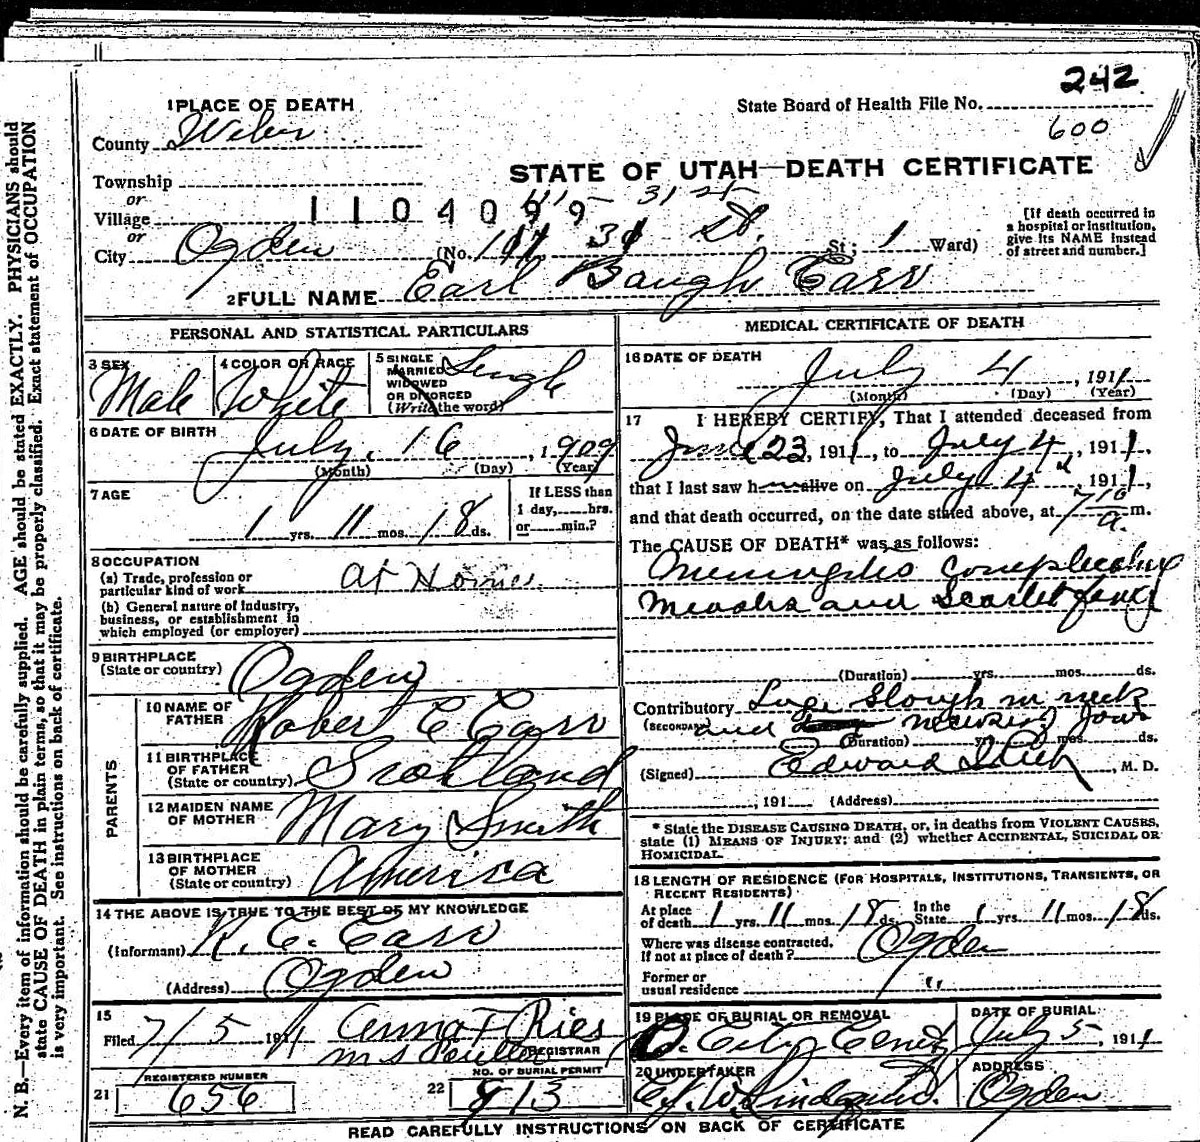 242
1 PLACE OF DEATH
State Board of Health File No.
600
County Weber
STATE OF UTAH—DEATH CERTIFICATE
Township
or
Village
1104099
31 st
or
City Ogden (No. 31 St. St; 1 Ward)
[If death occurred in a hospital or institution, give its NAME instead of street and number.]
2 FULL NAME Earl Baugh Carr
PERSONAL AND STATISTICAL PARTICULARS
3 SEX Male
4 COLOR OR RACE White
5 SINGLE MARRIED WIDOWED OR DIVORCED (Write the word) Single
6 DATE OF BIRTH
July 16, 1909
(Month) (Day) (Year)
7 AGE
1 yrs. 11 mos. 18 ds.
If LESS than 1 day, hrs. or min.?
8 OCCUPATION
(a) Trade, profession or particular kind of work at Home
(b) General nature of Industry, business, or establishment in which employed (or employer)
9 BIRTHPLACE (State or country) Ogden
PARENTS
10 NAME OF FATHER Robert C Carr
11 BIRTHPLACE OF FATHER (State or country) Scotland
12 MAIDEN NAME OF MOTHER Mary Smith
13 BIRTHPLACE OF MOTHER (State or country) America
14 THE ABOVE IS TRUE TO THE BEST OF MY KNOWLEDGE
(Informant) R. C. Carr
(Address) Ogden
15
Filed 7/5 1911 Anna F Ries
REGISTRAR
REGISTERED NUMBER
21 656
NO. OF BURIAL PERMIT
22 913
MEDICAL CERTIFICATE OF DEATH
16 DATE OF DEATH
July 4, 1911
(Month) (Day) (Year)
17 I HEREBY CERTIFY, That I attended deceased from
June 23, 1911, to July 4, 1911,
that I last saw h im alive on July 4, 1911,
and that death occurred, on the date stated above, at 7 10 a. m.
The CAUSE OF DEATH* was as follows:
Meningitis complicating
Measles and Scarlet fever
(Duration) yrs. mos. ds.
Contributory Large Slough in neck
(SECONDARY) and
(Duration) yrs. mos. ds.
(Signed) Edward , M. D.
, 191 (Address)
* State the DISEASE CAUSING DEATH, or, in deaths from VIOLENT CAUSES, state (1) MEANS OF INJURY; and (2) whether ACCIDENTAL, SUICIDAL OR HOMICIDAL.
18 LENGTH OF RESIDENCE (FOR HOSPITALS, INSTITUTIONS, TRANSIENTS, OR RECENT RESIDENTS)
At place of death 1 yrs. 11 mos. 18 ds. In the State 1 yrs. 11 mos. 18 ds.
Where was disease contracted, If not at place of death? Ogden
Former or usual residence "
19 PLACE OF BURIAL OR REMOVAL
O. City Cemet
DATE OF BURIAL
July 5, 1911
20 UNDERTAKER
ADDRESS
Ogden
READ CAREFULLY INSTRUCTIONS ON BACK OF CERTIFICATE
N. B.—Every item of information should be carefully supplied. AGE should be stated EXACTLY. PHYSICIANS should
state CAUSE OF DEATH in plain terms, so that it may be properly classified. Exact statement of OCCUPATION
is very important. See instructions on back of certificate.